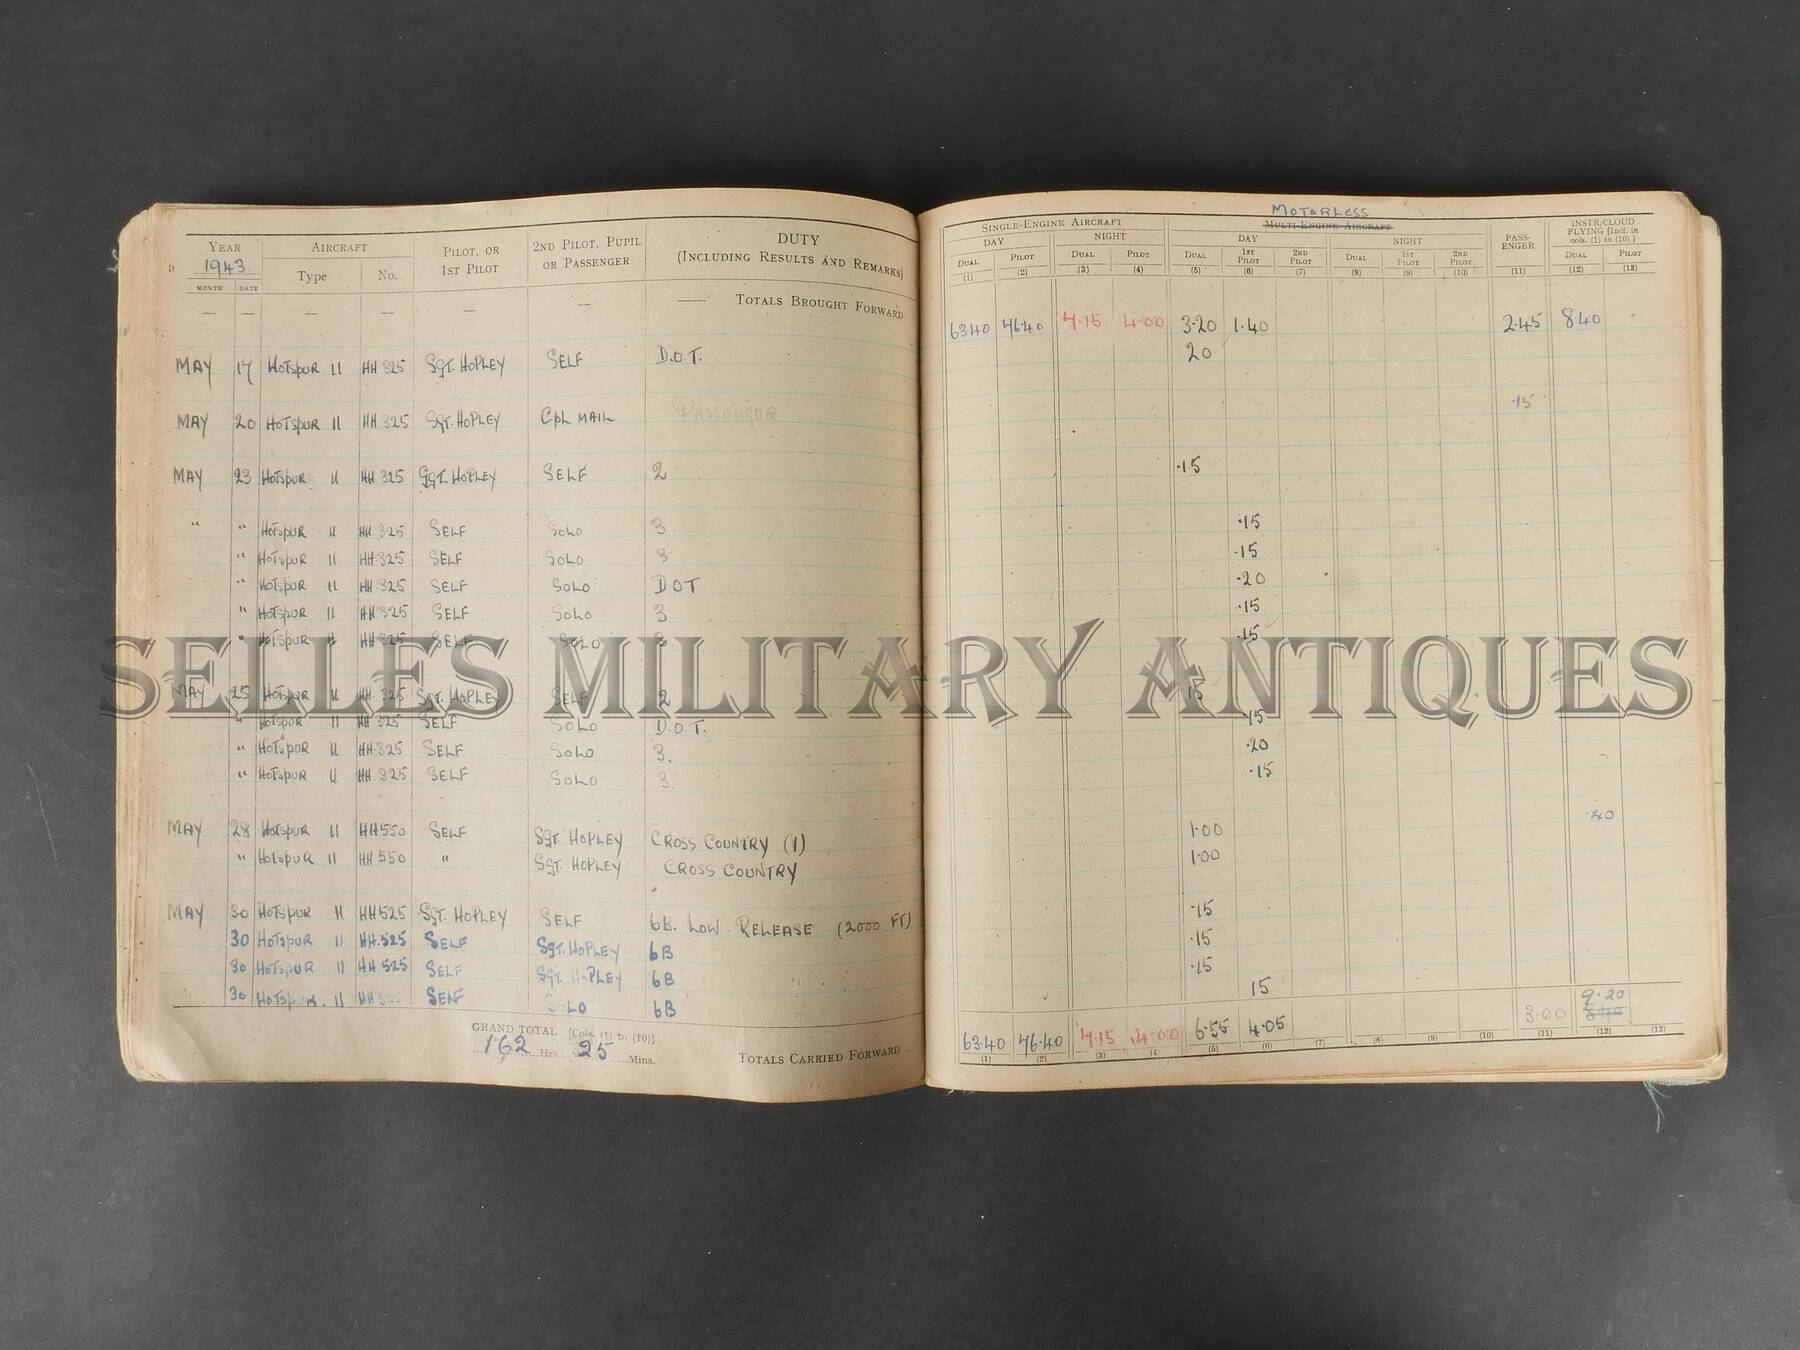 MOTORLESS
YEAR AIRCRAFT PILOT, OR 1ST PILOT 2ND PILOT, PUPIL OR PASSENGER DUTY (INCLUDING RESULTS AND REMARKS) SINGLE-ENGINE AIRCRAFT MULTI-ENGINE AIRCRAFT PASS-ENGER INSTR/CLOUD FLYING [Incl. in cols. (1) to (10)]
1943 Type No. DAY NIGHT DAY NIGHT
MONTH DATE DUAL PILOT DUAL PILOT DUAL 1ST PILOT 2ND PILOT DUAL 1ST PILOT 2ND PILOT DUAL PILOT
(1) (2) (3) (4) (5) (6) (7) (8) (9) (10) (11) (12) (13)
— — — — — — —— TOTALS BROUGHT FORWARD 63.40 46.40 4.15 4.00 3.20 1.40 2.45 8.40
MAY 17 HOTSPUR II HH 325 SGT. HOPLEY SELF D.O.T. 20
MAY 20 HOTSPUR II HH.325 SGT. HOPLEY CPL MAIL PASSENGER .15
MAY 23 HOTSPUR II HH 325 SGT. HOPLEY SELF 2 .15
" " HOTSPUR II HH.325 SELF SOLO 3. .15
" HOTSPUR II HH.325 SELF SOLO 3 .15
" HOTSPUR II HH.325 SELF SOLO DOT .20
" HOTSPUR II HH.325 SELF SOLO 3 .15
" HOTSPUR II HH.325 SELF SOLO 3 .15
SELLES MILITARY ANTIQUES
MAY 25 HOTSPUR II HH.325 SGT. HOPLEY SELF 2 15
" HOTSPUR II HH 325 SELF SOLO D.O.T. .15
" HOTSPUR II HH.325 SELF SOLO 3. .20
" HOTSPUR II HH.325 SELF SOLO 3. .15
MAY 28 HOTSPUR II HH550 SELF SGT. HOPLEY CROSS COUNTRY (1) 1.00 .40
" HOTSPUR II HH 550 " SGT. HOPLEY CROSS COUNTRY 1.00
MAY 30 HOTSPUR II HH525 SGT. HOPLEY SELF 6B. LOW RELEASE (2000 FT) .15
30 HOTSPUR II HH.525 SELF SGT. HOPLEY 6B .15
30 HOTSPUR II HH 525 SELF SGT. HOPLEY 6B .15
30 HOTSPUR. II SELF SOLO 6B 15
GRAND TOTAL [Cols. (1) to (10)]
162 Hrs. 25 Mins.
TOTALS CARRIED FORWARD 63.40 46.40 4.15 4.00 6.55 4.05 3.00 9.20
(1) (2) (3) (4) (5) (6) (7) (8) (9) (10) (11) (12) (13)